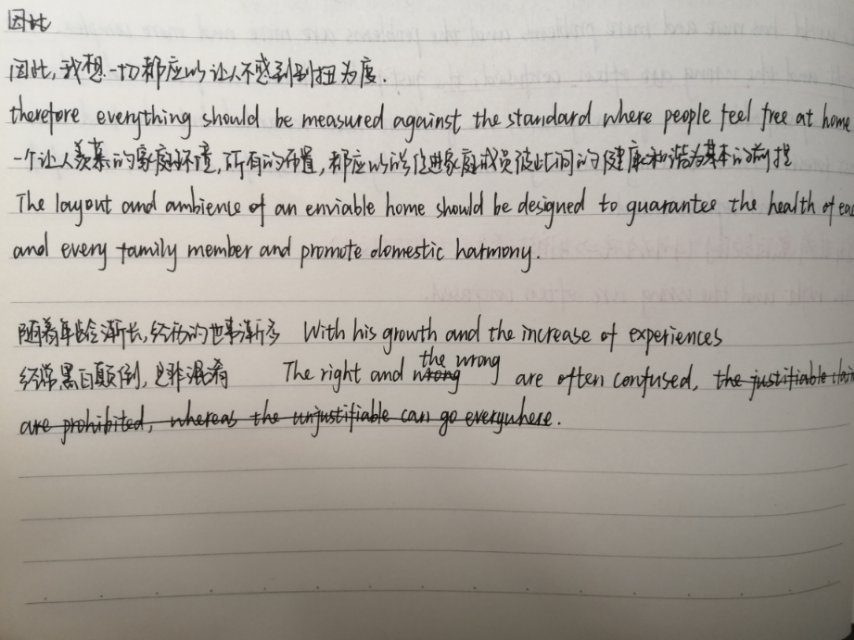 因此
因此,我想一切都应以让人不感到别扭为度.
therefore everything should be measured against the standard where people feel free at home
一个让人羡慕的家庭环境,所有的布置,都应以能促进家庭成员彼此间的健康和谐为基本的前提
The layout and ambience of an enviable home should be designed to guarantee the health of
and every family member and promote domestic harmony.
随着年龄渐长,经历的世事渐多 With his growth and the increase of experiences
经常黑白颠倒,是非混淆 The right and wrong the wrong are often confused, the justifiable
are prohibited, whereas the unjustifiable can go everywhere.